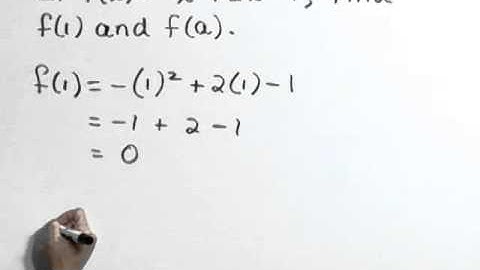 f(1) and f(a).
f(1) = -(1)² + 2(1) - 1
= -1 + 2 - 1
= 0